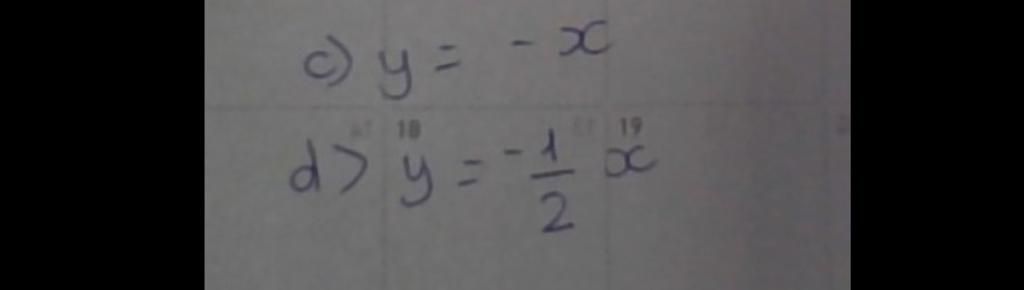 c) y = - x
18 19
d> y = -1/2 x